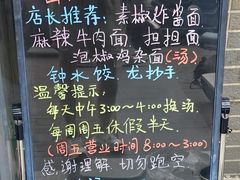 店长推荐：素椒炸酱面
麻辣牛肉面、担担面
泡椒鸡杂面（汤）
钟水饺、龙抄手、
温馨提示：
每天中午3:00～4:00换汤
每周周五休假半天
（周五营业时间8:00～3:00）
感谢理解，切勿跑空